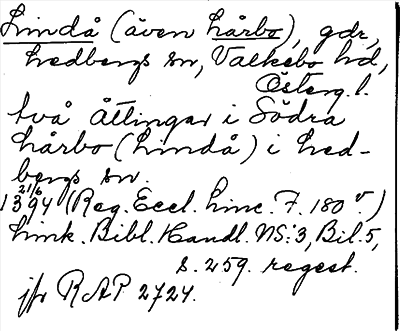 Lindå (även Lårbo), gdr,
Ledbergs sn, Valkebo hd,
Österg. l.
två åttingar i Södra
Lårbo (Lindå) i Led-
bergs sn.
1394 21/6 (Reg. Eccl. Linc. F. 180 v.)
Link. Bibl. Handl. NS: 3, Bil. 5,
s. 259. regest.
jfr RAP 2724.